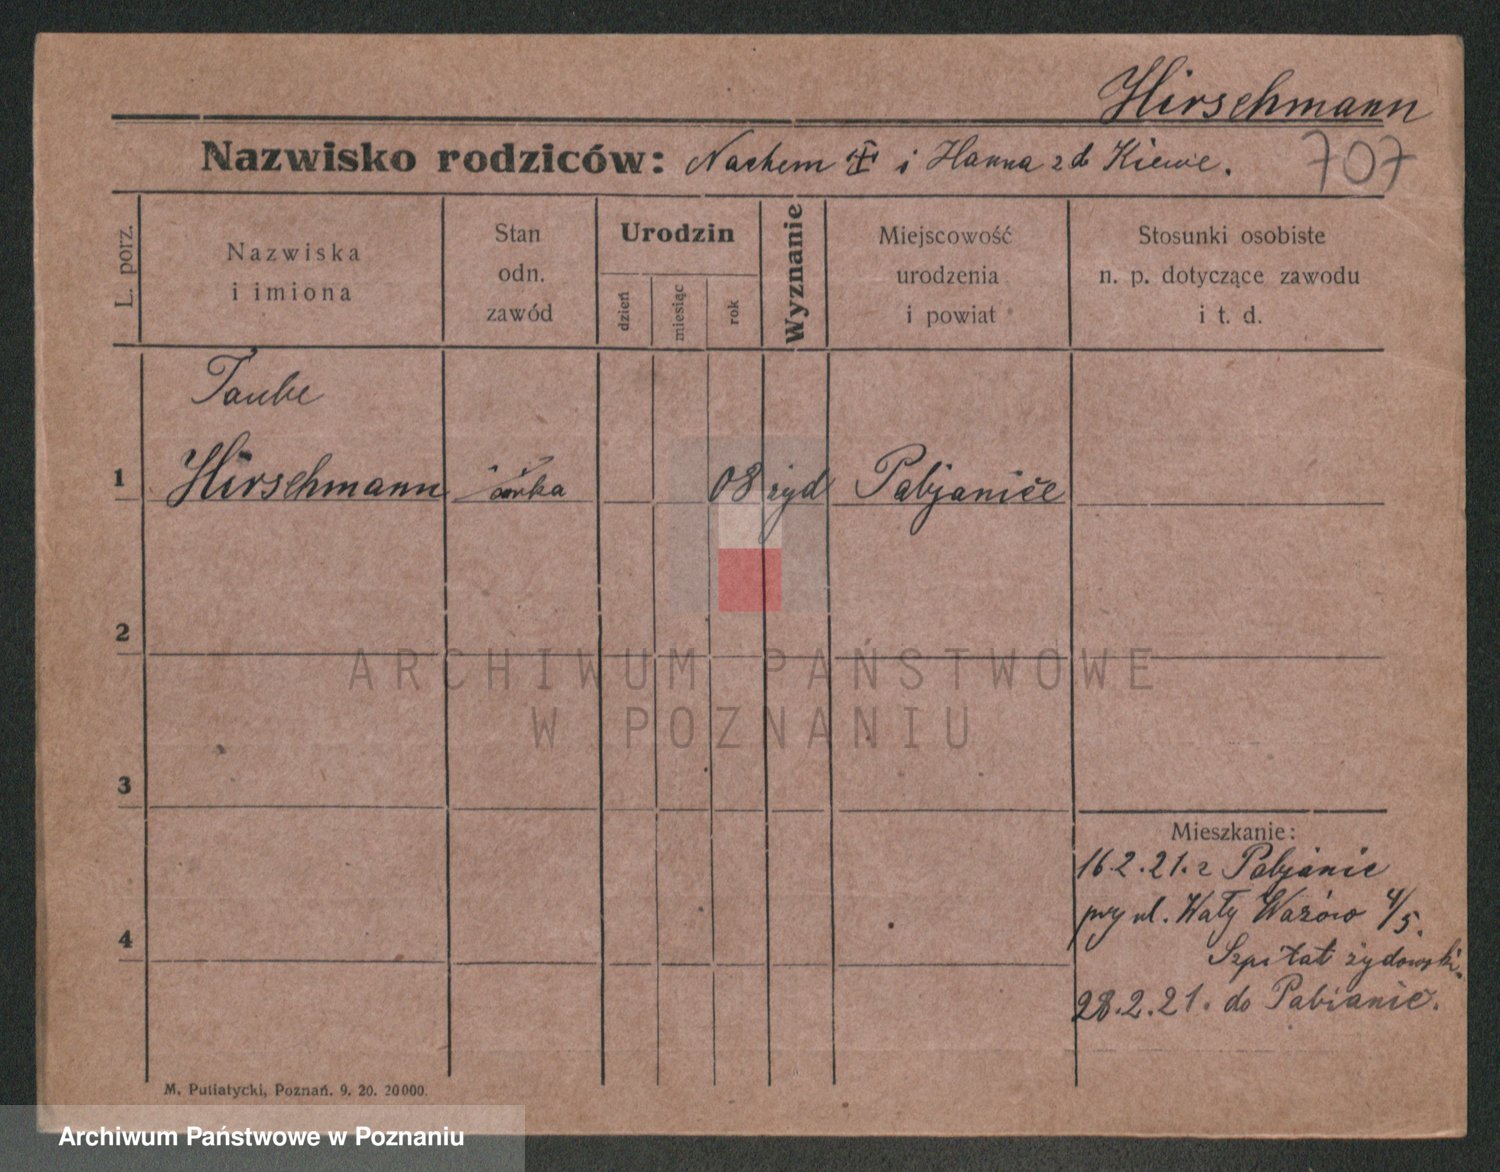 Hirschmann
Nazwisko rodziców: Nachem ✝ i Hanna z d Kiewe.
707
L. porz.
Nazwiska
i imiona
Stan
odn.
zawód
Urodzin
dzień
miesiąc
rok
Wyznanie
Miejscowość
urodzenia
i powiat
Stosunki osobiste
n. p. dotyczące zawodu
i t. d.
Taube
1 Hirschmann córka 08 żyd Pabjanice
2
3
4
Mieszkanie:
16.2.21. z Pabjanic
przy ul. Wały Wazów 4/5.
Szpitat żydowski.
28.2.21. do Pabianic.
M. Putiatycki, Poznań. 9. 20. 20000.
ARCHIWUM PAŃSTWOWE
W POZNANIU
Archiwum Państwowe w Poznaniu